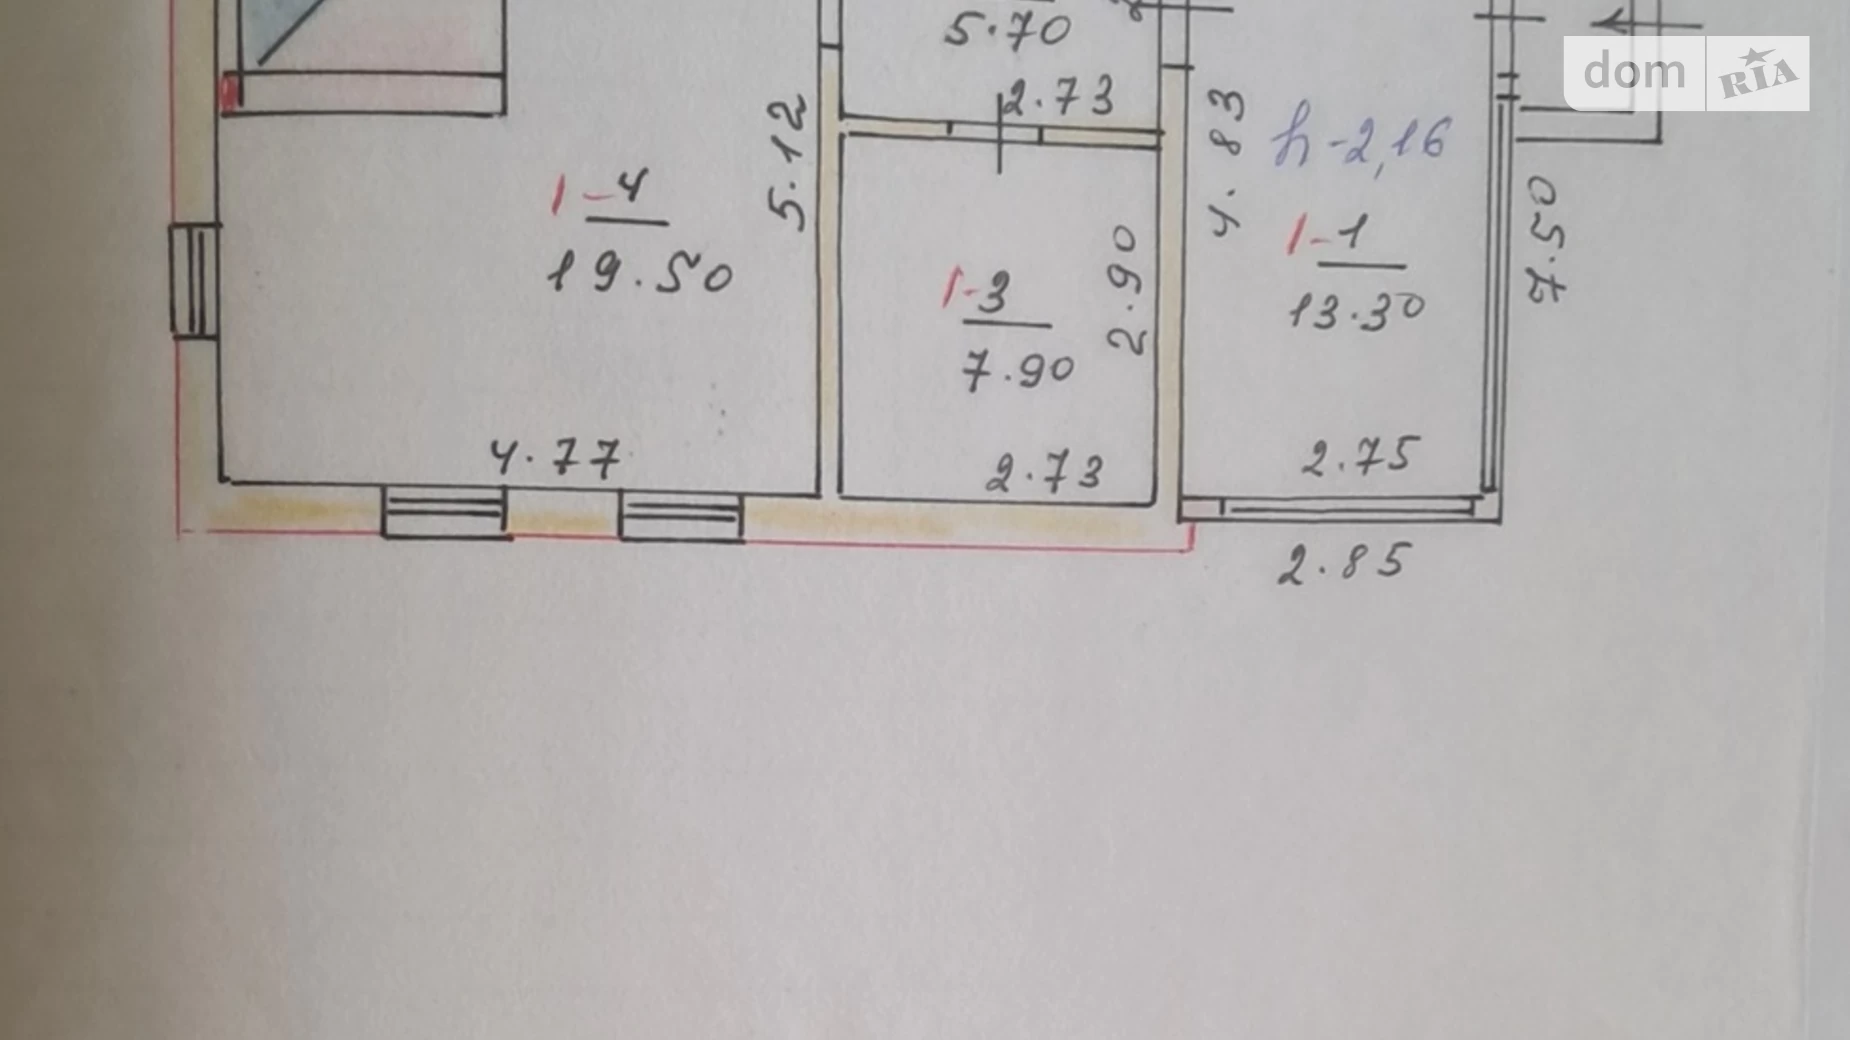 5.70
2.73
dom RIA
5.12
4.83
h-2,16
I-4
19.50
I-1
13.30
7.50
I-3
7.90
2.90
4.77
2.73
2.75
2.85